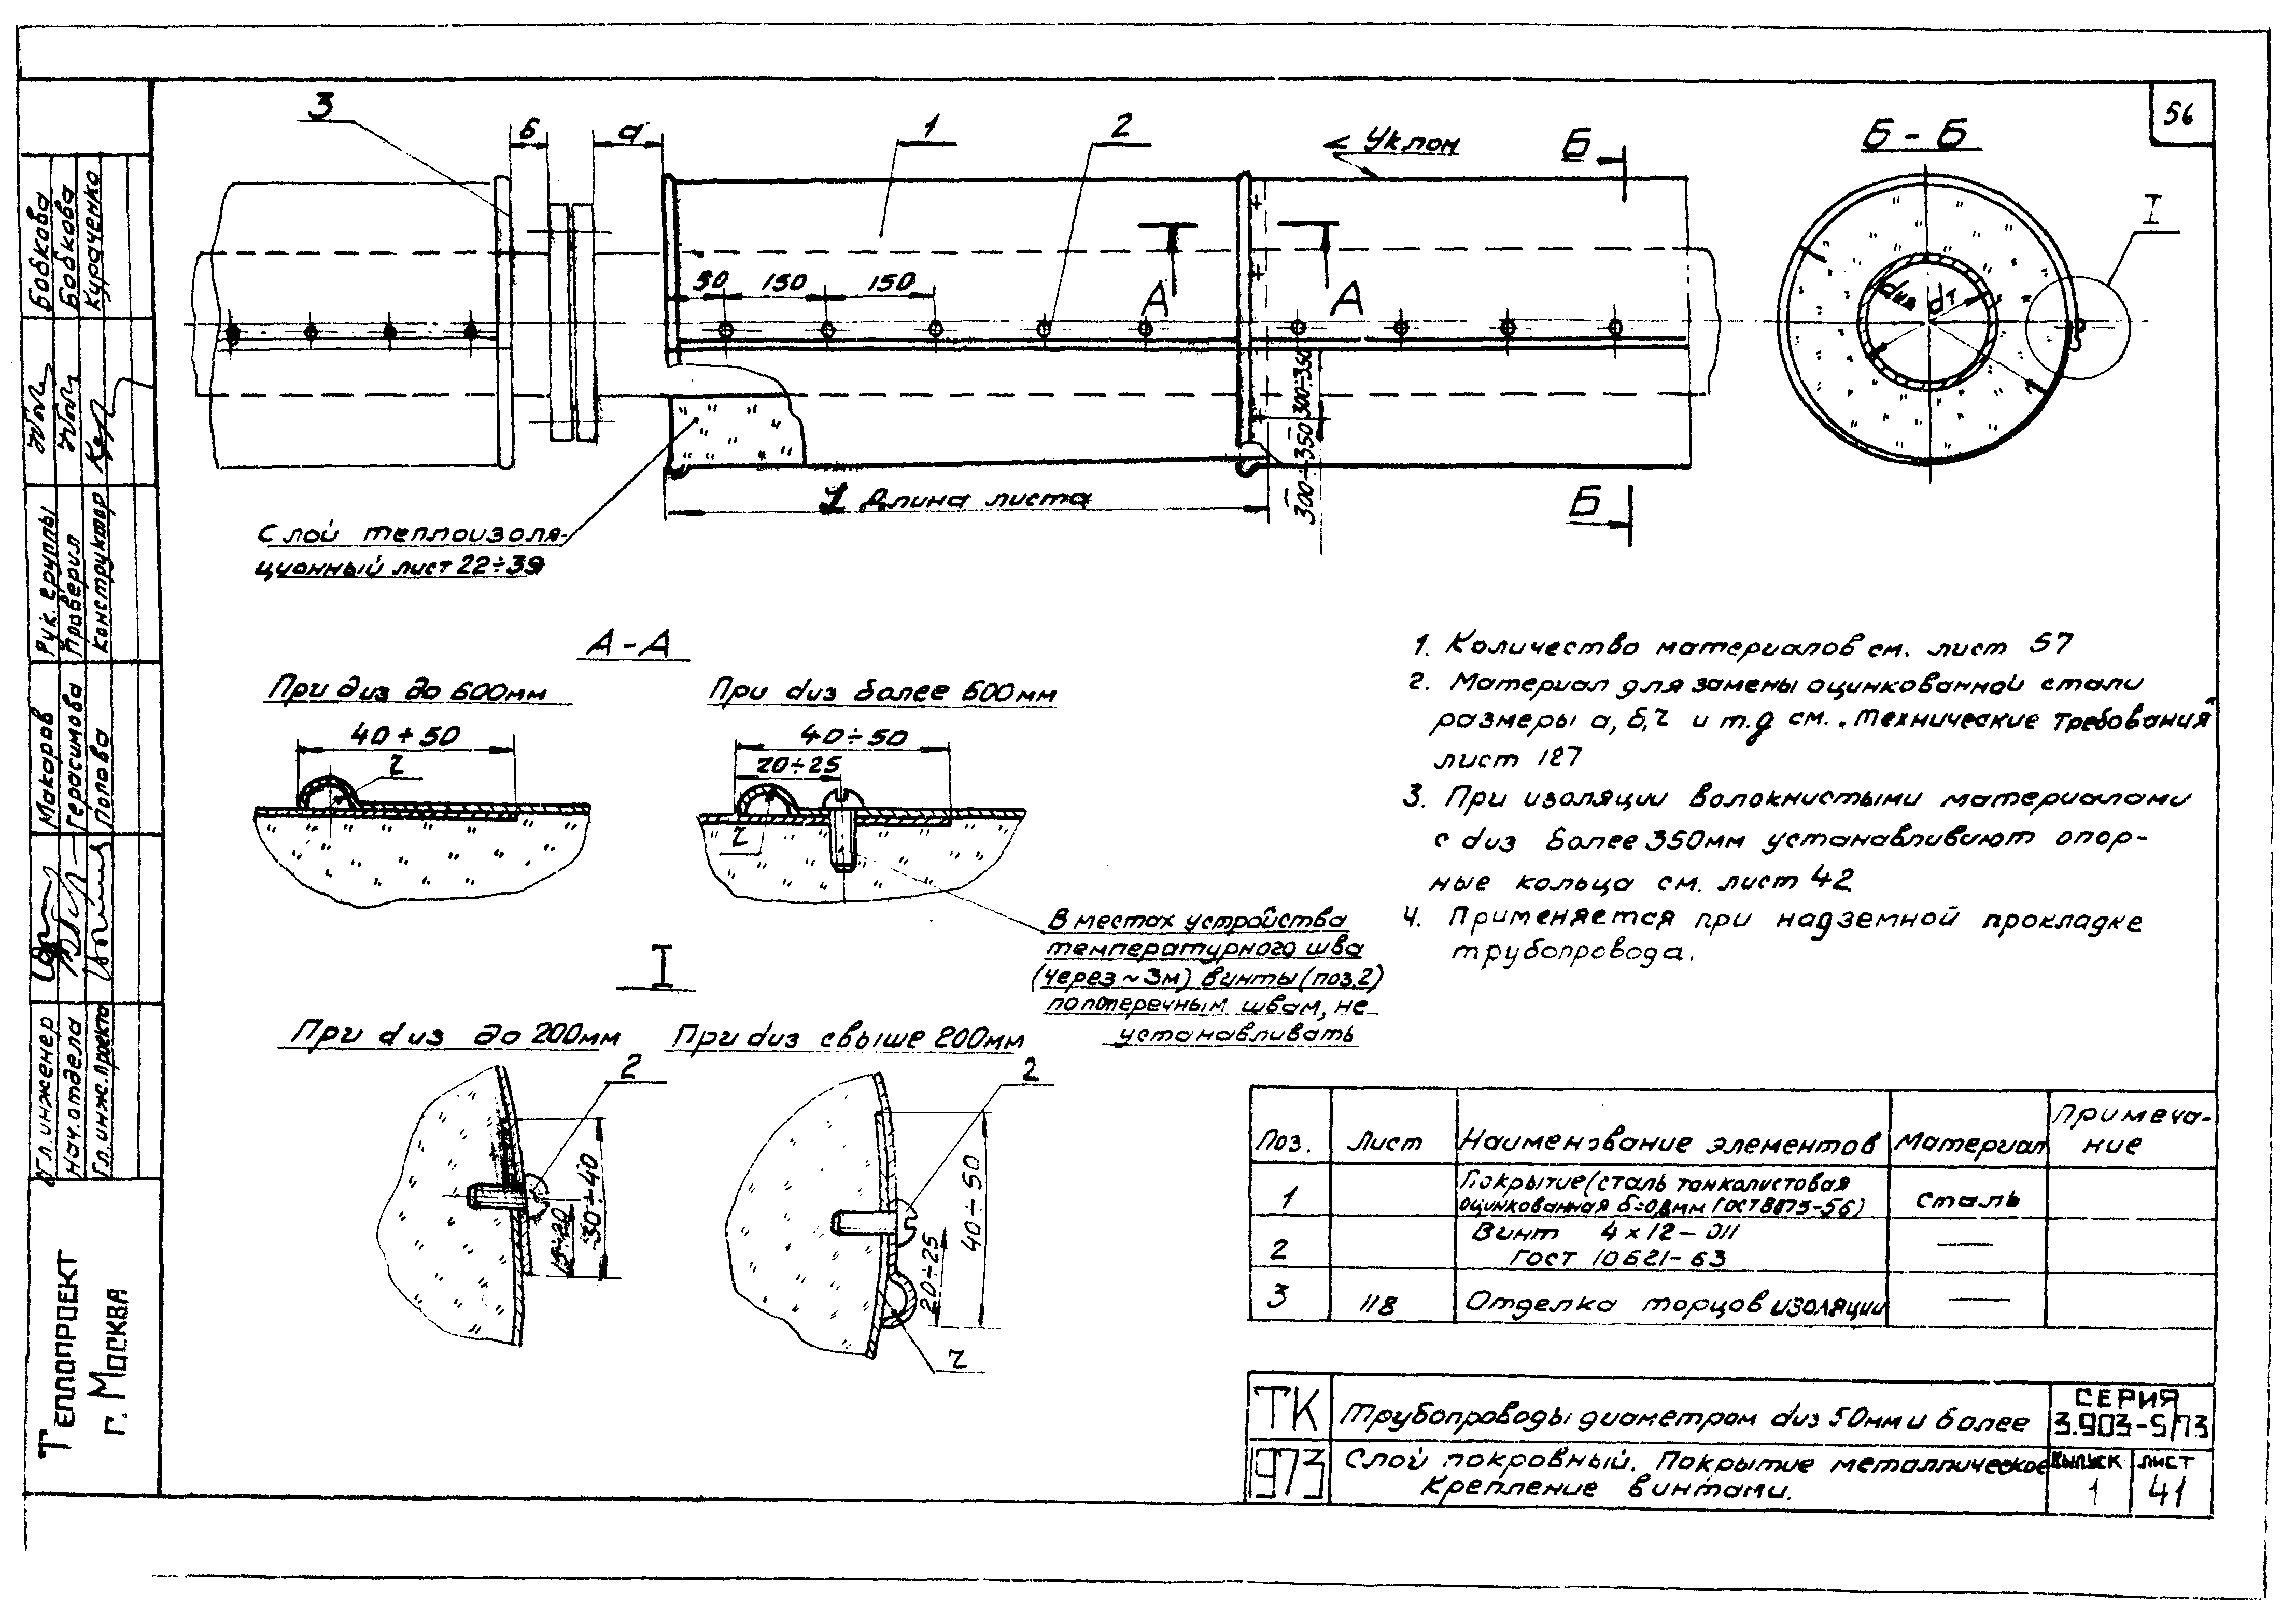 56
3
б
а
1
2
< Уклон
Б
Б - Б
I
50
150
150
А
А
dиз
dт
300÷350
300÷350
1 Длина листа
Б
Слой теплоизоля-
ционный лист 22÷39
А - А
При dиз до 600мм
При dиз более 600мм
40÷50
40÷50
20÷25
r
r
В местах устройства
температурного шва
(через ~ 3м) винты (поз.2)
по поперечным швам, не
устанавливать
1. Количество материалов см. лист 57
2. Материал для замены оцинкованной стали
размеры а, б, r и т.д см. „Технические требования"
лист 127
3. При изоляции волокнистыми материалами
с dиз более 350мм устанавливают опор-
ные кольца см. лист 42
4. Применяется при надземной прокладке
трубопровода.
I
При dиз до 200мм
При dиз свыше 200мм
2
2
15÷20
30÷40
20÷25
40÷50
r
Поз. Лист Наименование элементов Материал Примеча-
ние
1 Покрытие (сталь тонколистовая
оцинкованная б=0,8мм ГОСТ 8075-56) сталь
2 Винт 4х12-011
ГОСТ 10621-63 —
3 118 Отделка торцов изоляции —
ТК
973
Трубопроводы диаметром dиз 50мм и более
Слой покровный. Покрытие металлическое
Крепление винтами.
СЕРИЯ
3.903-5/73
ВЫПУСК ЛИСТ
1 41
Бобкова
Бобкова
Кураченко
Рук. группы
Проверил
Конструктор
Макаров
Герасимова
Попова
Гл. инженер
Нач. отдела
Гл. инж. проекта
ТЕПЛОПРОЕКТ
г. МОСКВА